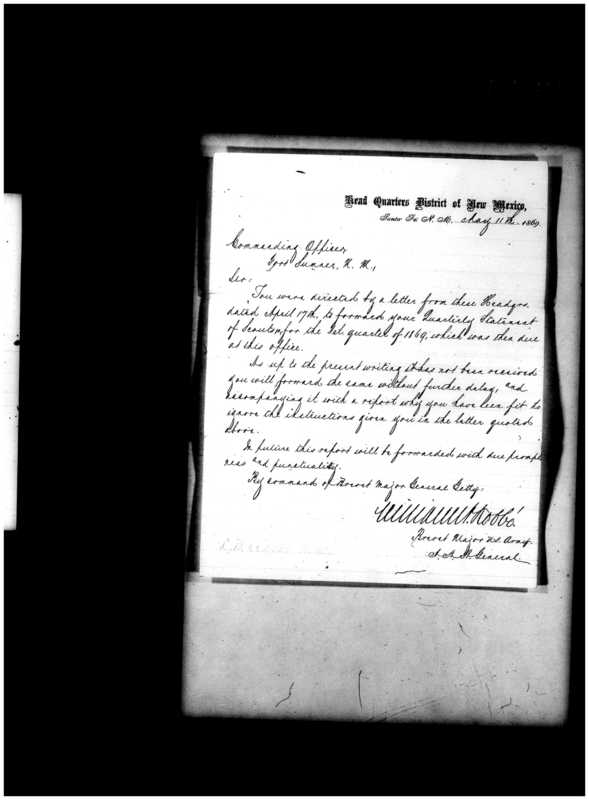 Head Quarters District of New Mexico,
Santa Fe N. M. May 11th 1869
Commanding Officer,
Fort Sumner, N. M.,
Sir:
You were directed by a letter from these Headqrs.
dated April 17th, to forward your Quarterly Statement
of Scouts for the 1st quarter of 1869, which was then due
at this office.
As up to the present writing it has not been received
you will forward the same without further delay, and
accompanying it with a report why you have seen fit to
ignore the instructions given you in the letter quoted
above.
In future this report will be forwarded with due prompt
ness and punctuality.
By command of Brevet Major General Getty.
William A. Kobbé
Brevet Major U.S. Army
A. A. A. General